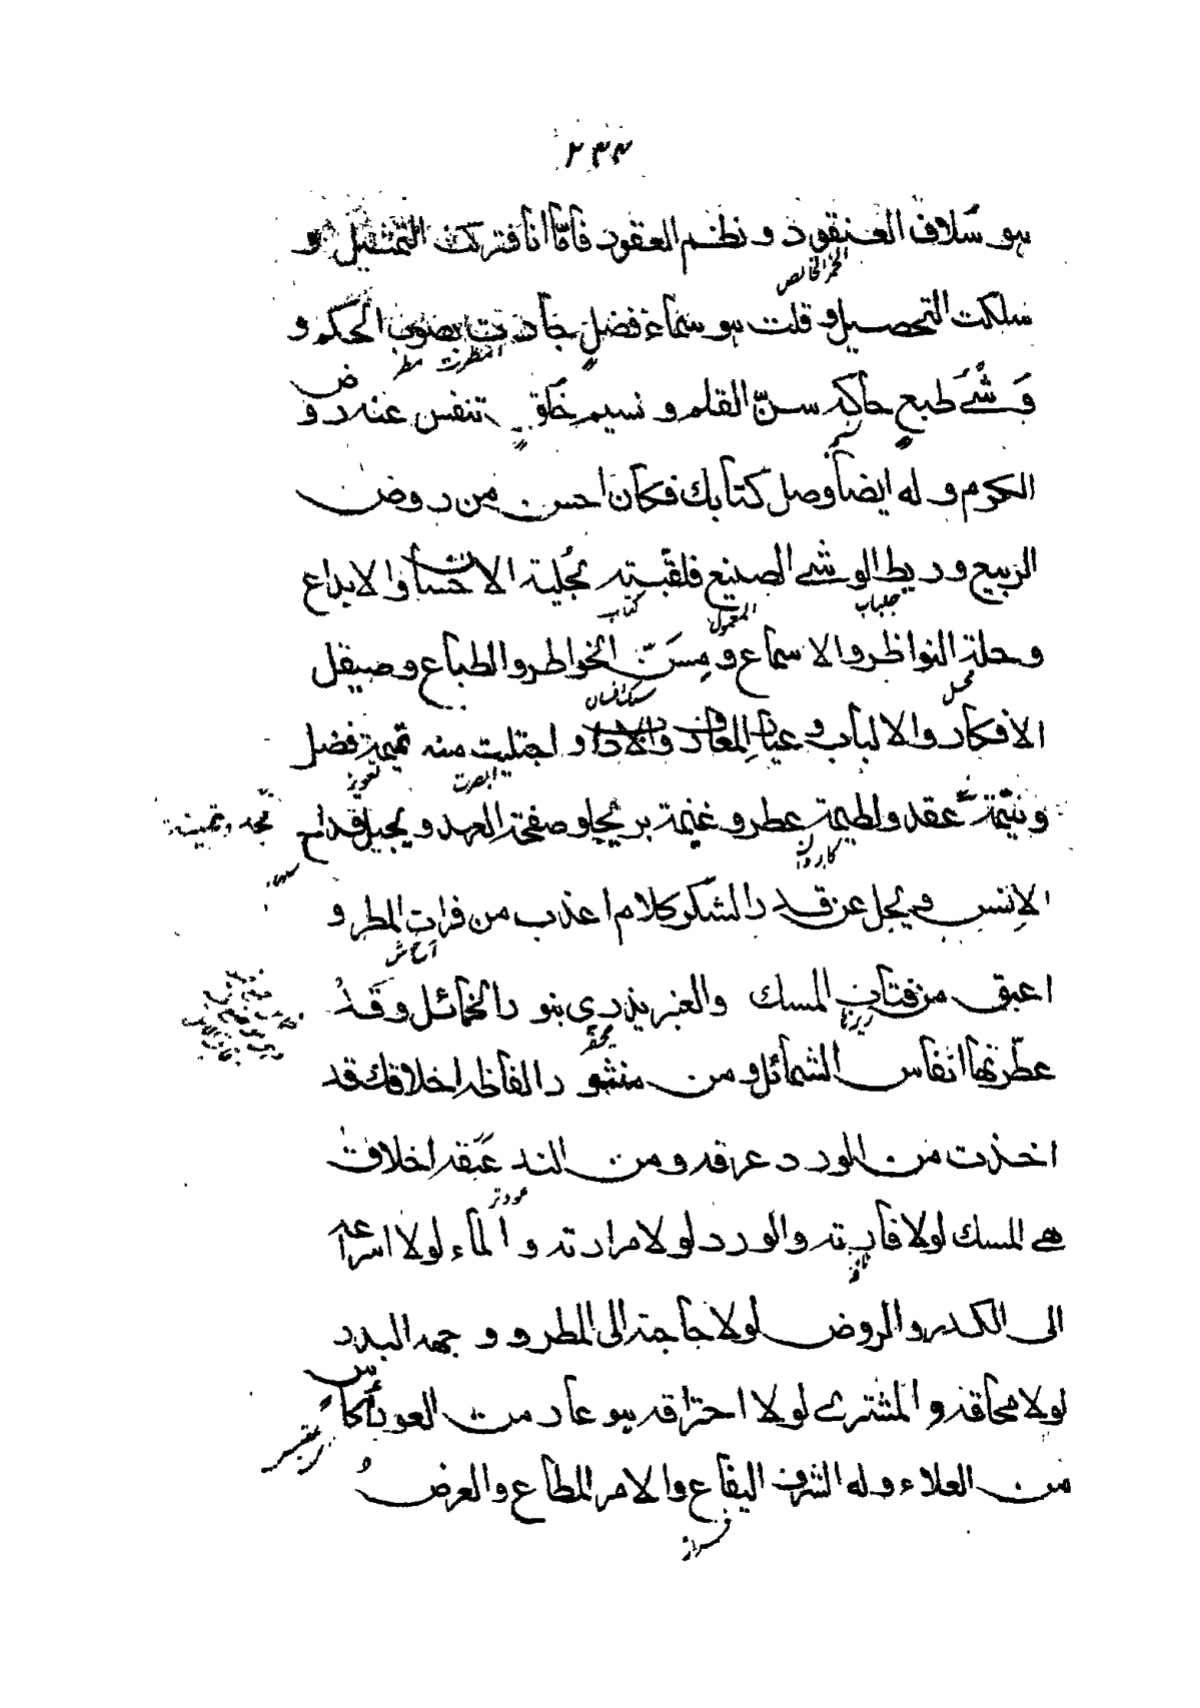 ٢٣٤
هو سُلاف العنقود و نظم العقود فأمّا انا فتركت التمثيل و
الخمر الخالص
سلكت التحصيل و قلت هو سماء فضلٍ جادت بصوب الحكم و
امطرت مطر
وَشْي طبعٍ حاكه سنّ القلم و نسيم خَلقٍ تنفس عنه روض
الكرم و له ايضا وصل كتابك فكان احسن من روض
الربيع و ريط الوشي الصنيع فلقبته بحُلية الاحسان والابداع
جلباب المعمول كتاب
وحلة النواظر والاسماع و مِسَنّ الخواطر والطباع وصيقل
الافكار والالباب و عيار المعارف والآداب و اجتليت منه تميمة فضل
ابصرت تعويذ
ويتيمة عقد ولطيمة عطر و غنيمة بر يجلو صفحة العهد و يجيل قداح
كاروان
الانس و يجل عن قدر الشكر كلام اعذب من فرات المطر و
اعبق من فتات المسك والعنبر يزدري بنور الخمائل وقَدْ
ريزها محقر
عطّرتها انفاس الشمائل و من منثور الفاظه اخلاقك قد
اخذت من الورد عرقه و من الند عَبَقه اخلاق
عود تر
هي المسك لولا فارته والورد لولا مرارته و الماء لولا اسراعه
نافه
الى الكدر والروض لولا حاجته الى المطر و وجهه البدر
لولا محاقه و المشتري لولا احتراقه هو عار من العوراء كاس
من العلاء و له الشرف اليفاع والامر المطاع والعرضُ
فراز